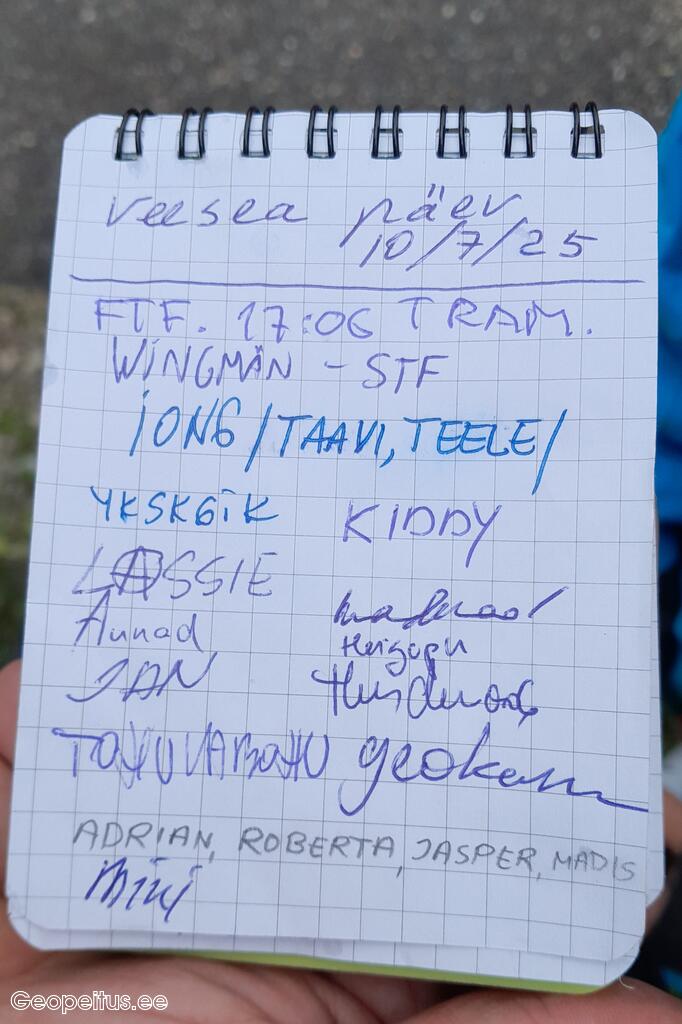 Veesea päev
10/7/25
FTF. 17:06 TRAM.
WINGMÄN - STF
iONG /TAAVI, TEELE/
YKSKÕIK KIDDY
LASSIE
Annad
JAN
geokann
ADRIAN, ROBERTA, JASPER, MADIS
mini
Geopeitus.ee